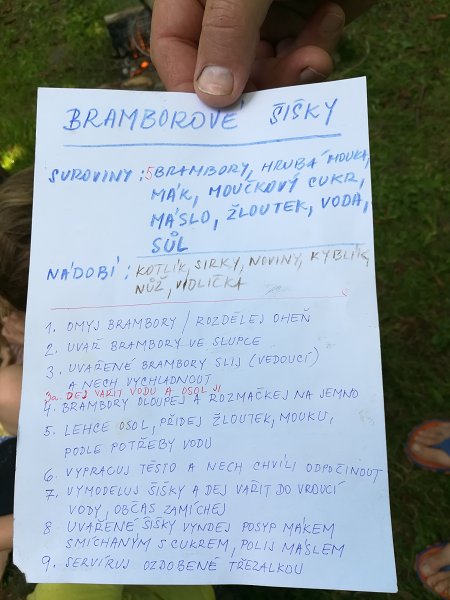 BRAMBOROVÉ ŠIŠKY
SUROVINY : 5 BRAMBORY, HRUBÁ MOUKA,
MÁK, MOUČKOVÝ CUKR,
MÁSLO, ŽLOUTEK, VODA,
SŮL
NÁDOBÍ : KOTLÍK, SIRKY, NOVINY, KYBLÍK,
NŮŽ, VIDLIČKA
1. OMYJ BRAMBORY / ROZDĚLEJ OHEŇ
2. UVAŘ BRAMBORY VE SLUPCE
3. UVAŘENÉ BRAMBORY SLIJ (VEDOUCÍ)
A NECH VYCHLADNOUT
3a. DEJ VAŘIT VODU A OSOL JI
4. BRAMBORY OLOUPEJ A ROZMAČKEJ NA JEMNO
5. LEHCE OSOL, PŘIDEJ ŽLOUTEK, MOUKU,
PODLE POTŘEBY VODU
6. VYPRACUJ TĚSTO A NECH CHVÍLI ODPOČINOUT
7. VYMODELUJ ŠIŠKY A DEJ VAŘIT DO VROUCÍ
VODY, OBČAS ZAMÍCHEJ
8. UVAŘENÉ ŠIŠKY VYNDEJ POSYP MÁKEM
SMÍCHANÝM S CUKREM, POLIJ MÁSLEM
9. SERVÍRUJ OZDOBENÉ TŘEZALKOU